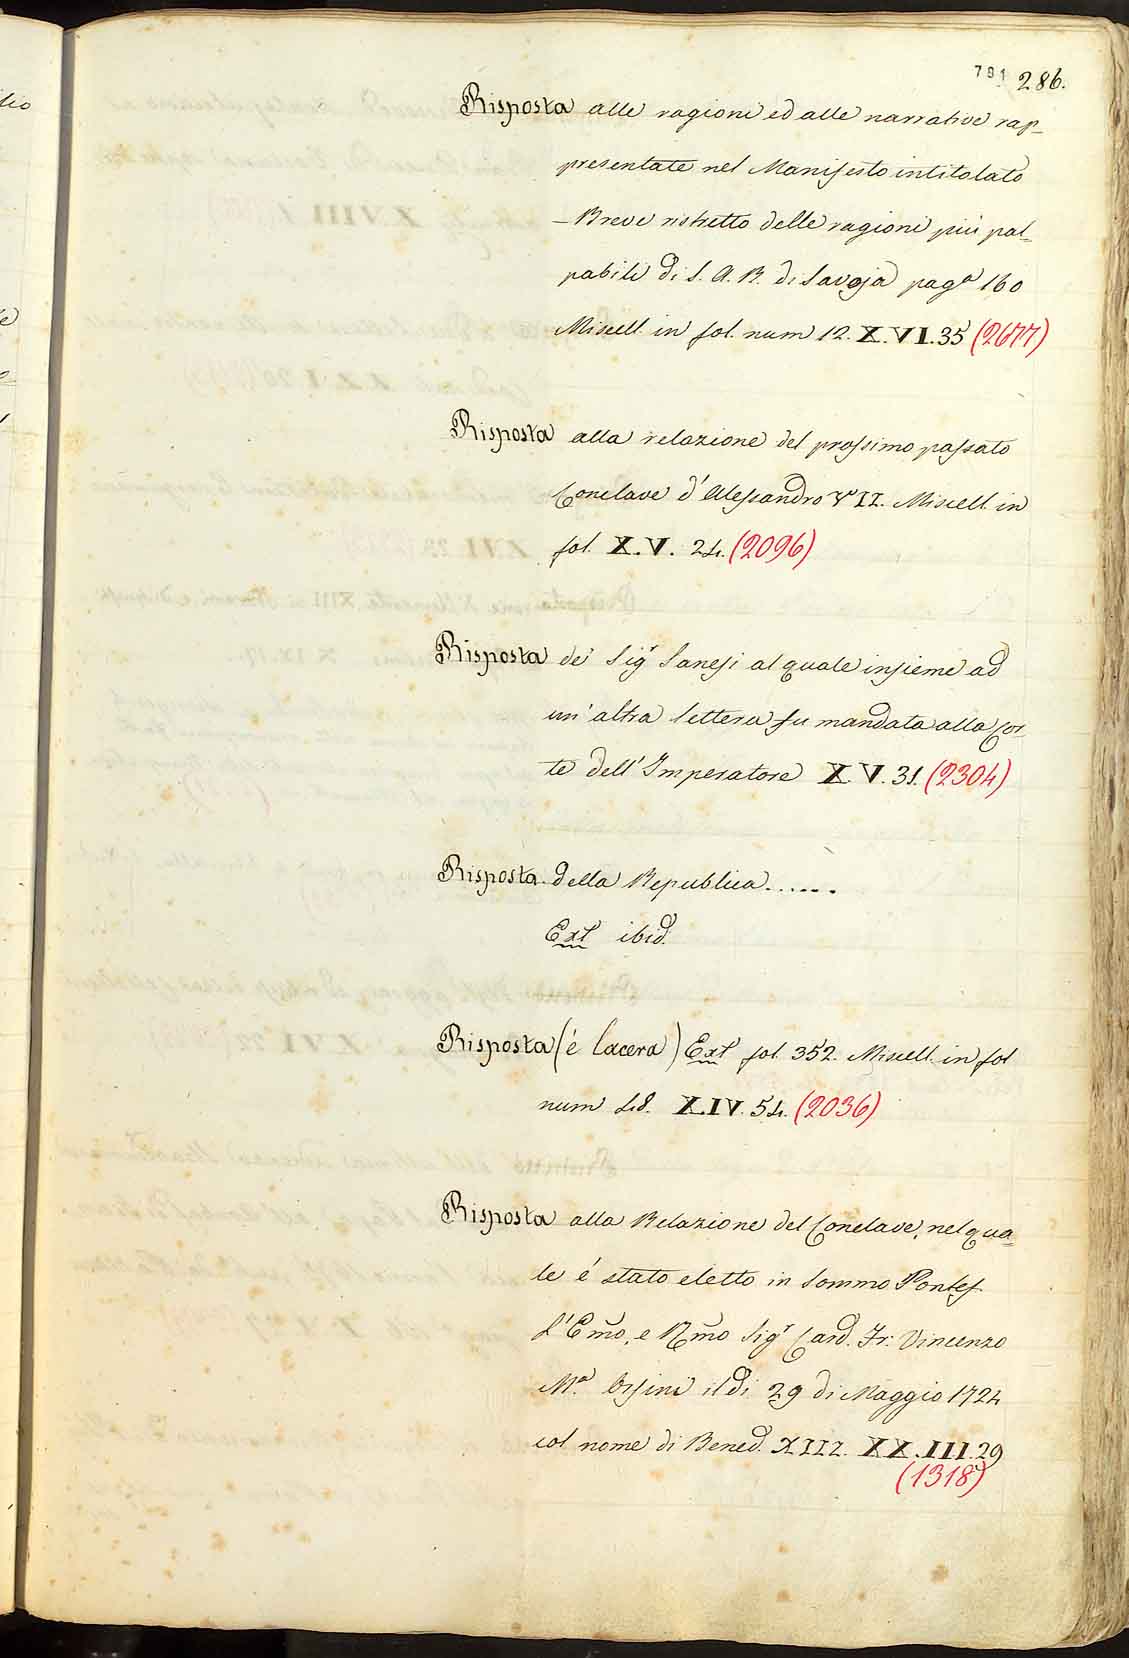 791 286.
Risposta alle ragioni ed alle narrative rap-
presentate nel Manifesto intitolato
- Breve ristretto delle ragioni più pal-
pabili di S. A. R. di Savoja pag.a 160
Miscell. in fol. num 12. X.VI.35 (2677)
Risposta alla relazione del prossimo passato
Conclave d'Alessandro VII. Miscell. in
fol. X.V. 24. (2096)
Risposta de' Sig.r Sanesi al quale insieme ad
un' altra lettera fu mandata alla Cor-
te dell'Imperatore X V. 31. (2304)
Risposta della Republica......
Ext ibid.
Risposta (é lacera) Ext fol. 352. Miscell. in fol
num 48. X.IV. 54. (2036)
Risposta alla Relazione del Conclave, nel qua-
le é stato eletto in Sommo Pontef.
l'Emo, e Rmo Sig.r Card. Fr. Vincenzo
M.a Orsini il di 29 di Maggio 1724
col nome di Bened. XIII. XX.III.29
(1318)